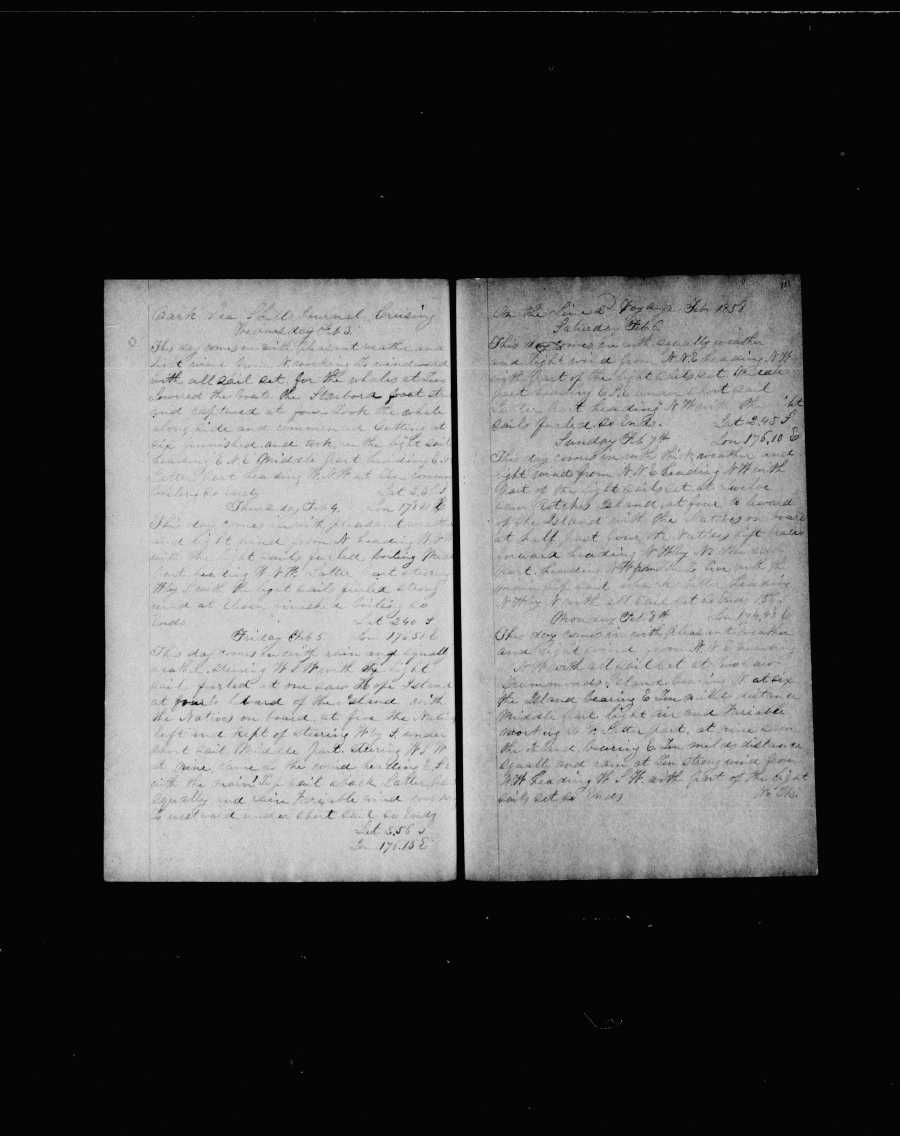 Bark Sea Shell Journal Cruising
Wednesday Feb 3
This day comes in with pleasant weather and
light wind from N working to windward
with all sail set for the whales at Ten
Lowered the boats the Starbord boat struck
and captured at four took the whale
along side and commenced cutting at
six finnished and took in the light sails
heading E.N.E Middle part heading E.N
Latter part heading W.N.W at
boiling So Ends Lat 2,56 S
Thursday Feb 4. Lon 178 E
This day comes in with pleasant weather
and light wind from N heading W.N.W
with the light sails furled boiling Middle
part heading W.N.W. Latter part steering
W by S with the light sails furled strong
wind at Eleven finished boiling So
Ends Lat 2.40 S
Friday Feb 5 Lon 176,51 E
This day comes in with rain and squall
weather Stearing W S W with the light
sails furled at one saw Hope Island
at four to leward of the Island with
the Natives on board at five the Natives
left and kept of steering W by S under
short sail Middle part Stearing W S W
at nine came to the wind heading E.N.E
with the main Top sail aback Latter part
squally and rain Variable wind working
to westward under short sail So Ends
Lat 2,56 S
Lon 176.15 E
On the Line 2d Voyage Feb 1858
Saturday Feb 6
This day comes in with squally weather
and light wind from N.N.E heading N.W
with part of the light sails set Middle
part heading E.N.E under short sail
Latter part heading N W with the light
sails furled So Ends. Lat 2,45 S
Sunday Feb 7th Lon 176,10 E
This day comes in with thick weather and
light wind from N N E heading N W with
part of the light sails set at twelve
saw Rotches Island, at four to leward
of the Island with the Natives on board
at half past four the Natives left
forward heading N W by N. Middle
part heading N W to five with the
main top sail aback Latter heading
N W by N with all sail set So Ends
Monday Feb 8th Lon 174,48 E
This day comes in with pleasant weather
and light wind from N N E heading
N.W. with all sail set at two saw
Drummonds Island bearing N at six
the Island bearing E Ten miles distance
Middle part light air and Variable
working to N. Latter part, at nine saw
the Island bearing E Ten miles distance
squally and rain at Ten strong wind from
N.W heading W.S.W. with part of the light
sails set So Ends No Obs.